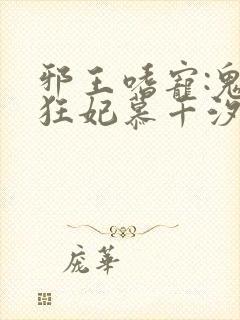 邪王嗜寵:鬼
狂妃慕千汐
庞華